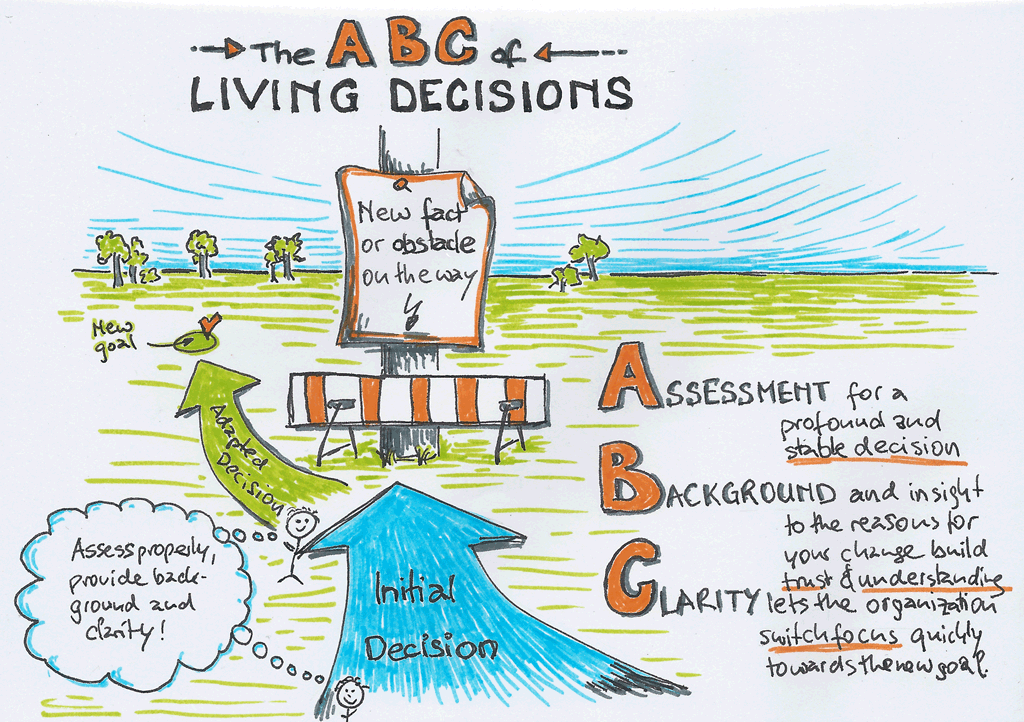 The ABC of
LIVING DECISIONS
New fact
or obstacle
on the way
New
goal
Adapted
Decision
Initial
Decision
Assess properly,
provide back-
ground and
clarity!
ASSESSMENT for a
profound and
stable decision
BACKGROUND and insight
to the reasons for
your change build
trust & understanding
CLARITY lets the organization
switch focus quickly
towards the new goal.